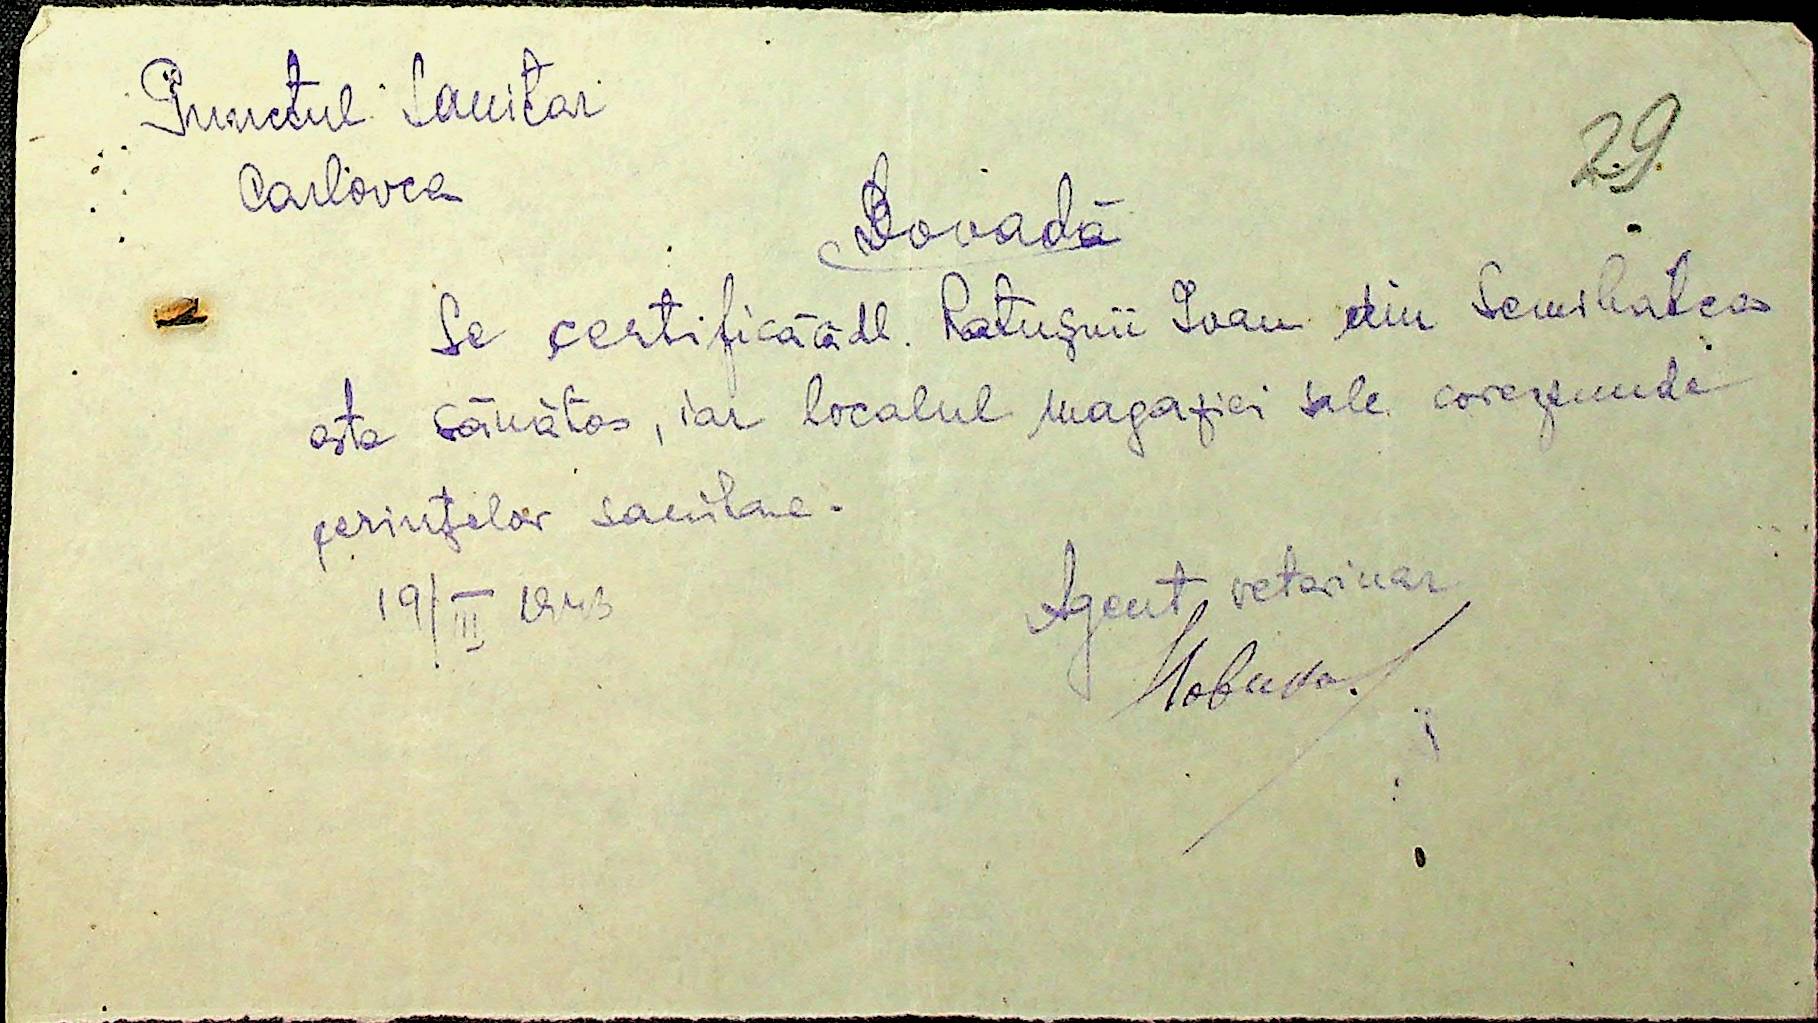 Punctul Sanitar
Carlovca
29
Dovadă
Se certifică că dl. Ratușnii Ivan din Semihatca
este sănătos, iar localul magaziei sale corezpunde
cerințelor sanitare.
19/III 1943
Agent veterinar